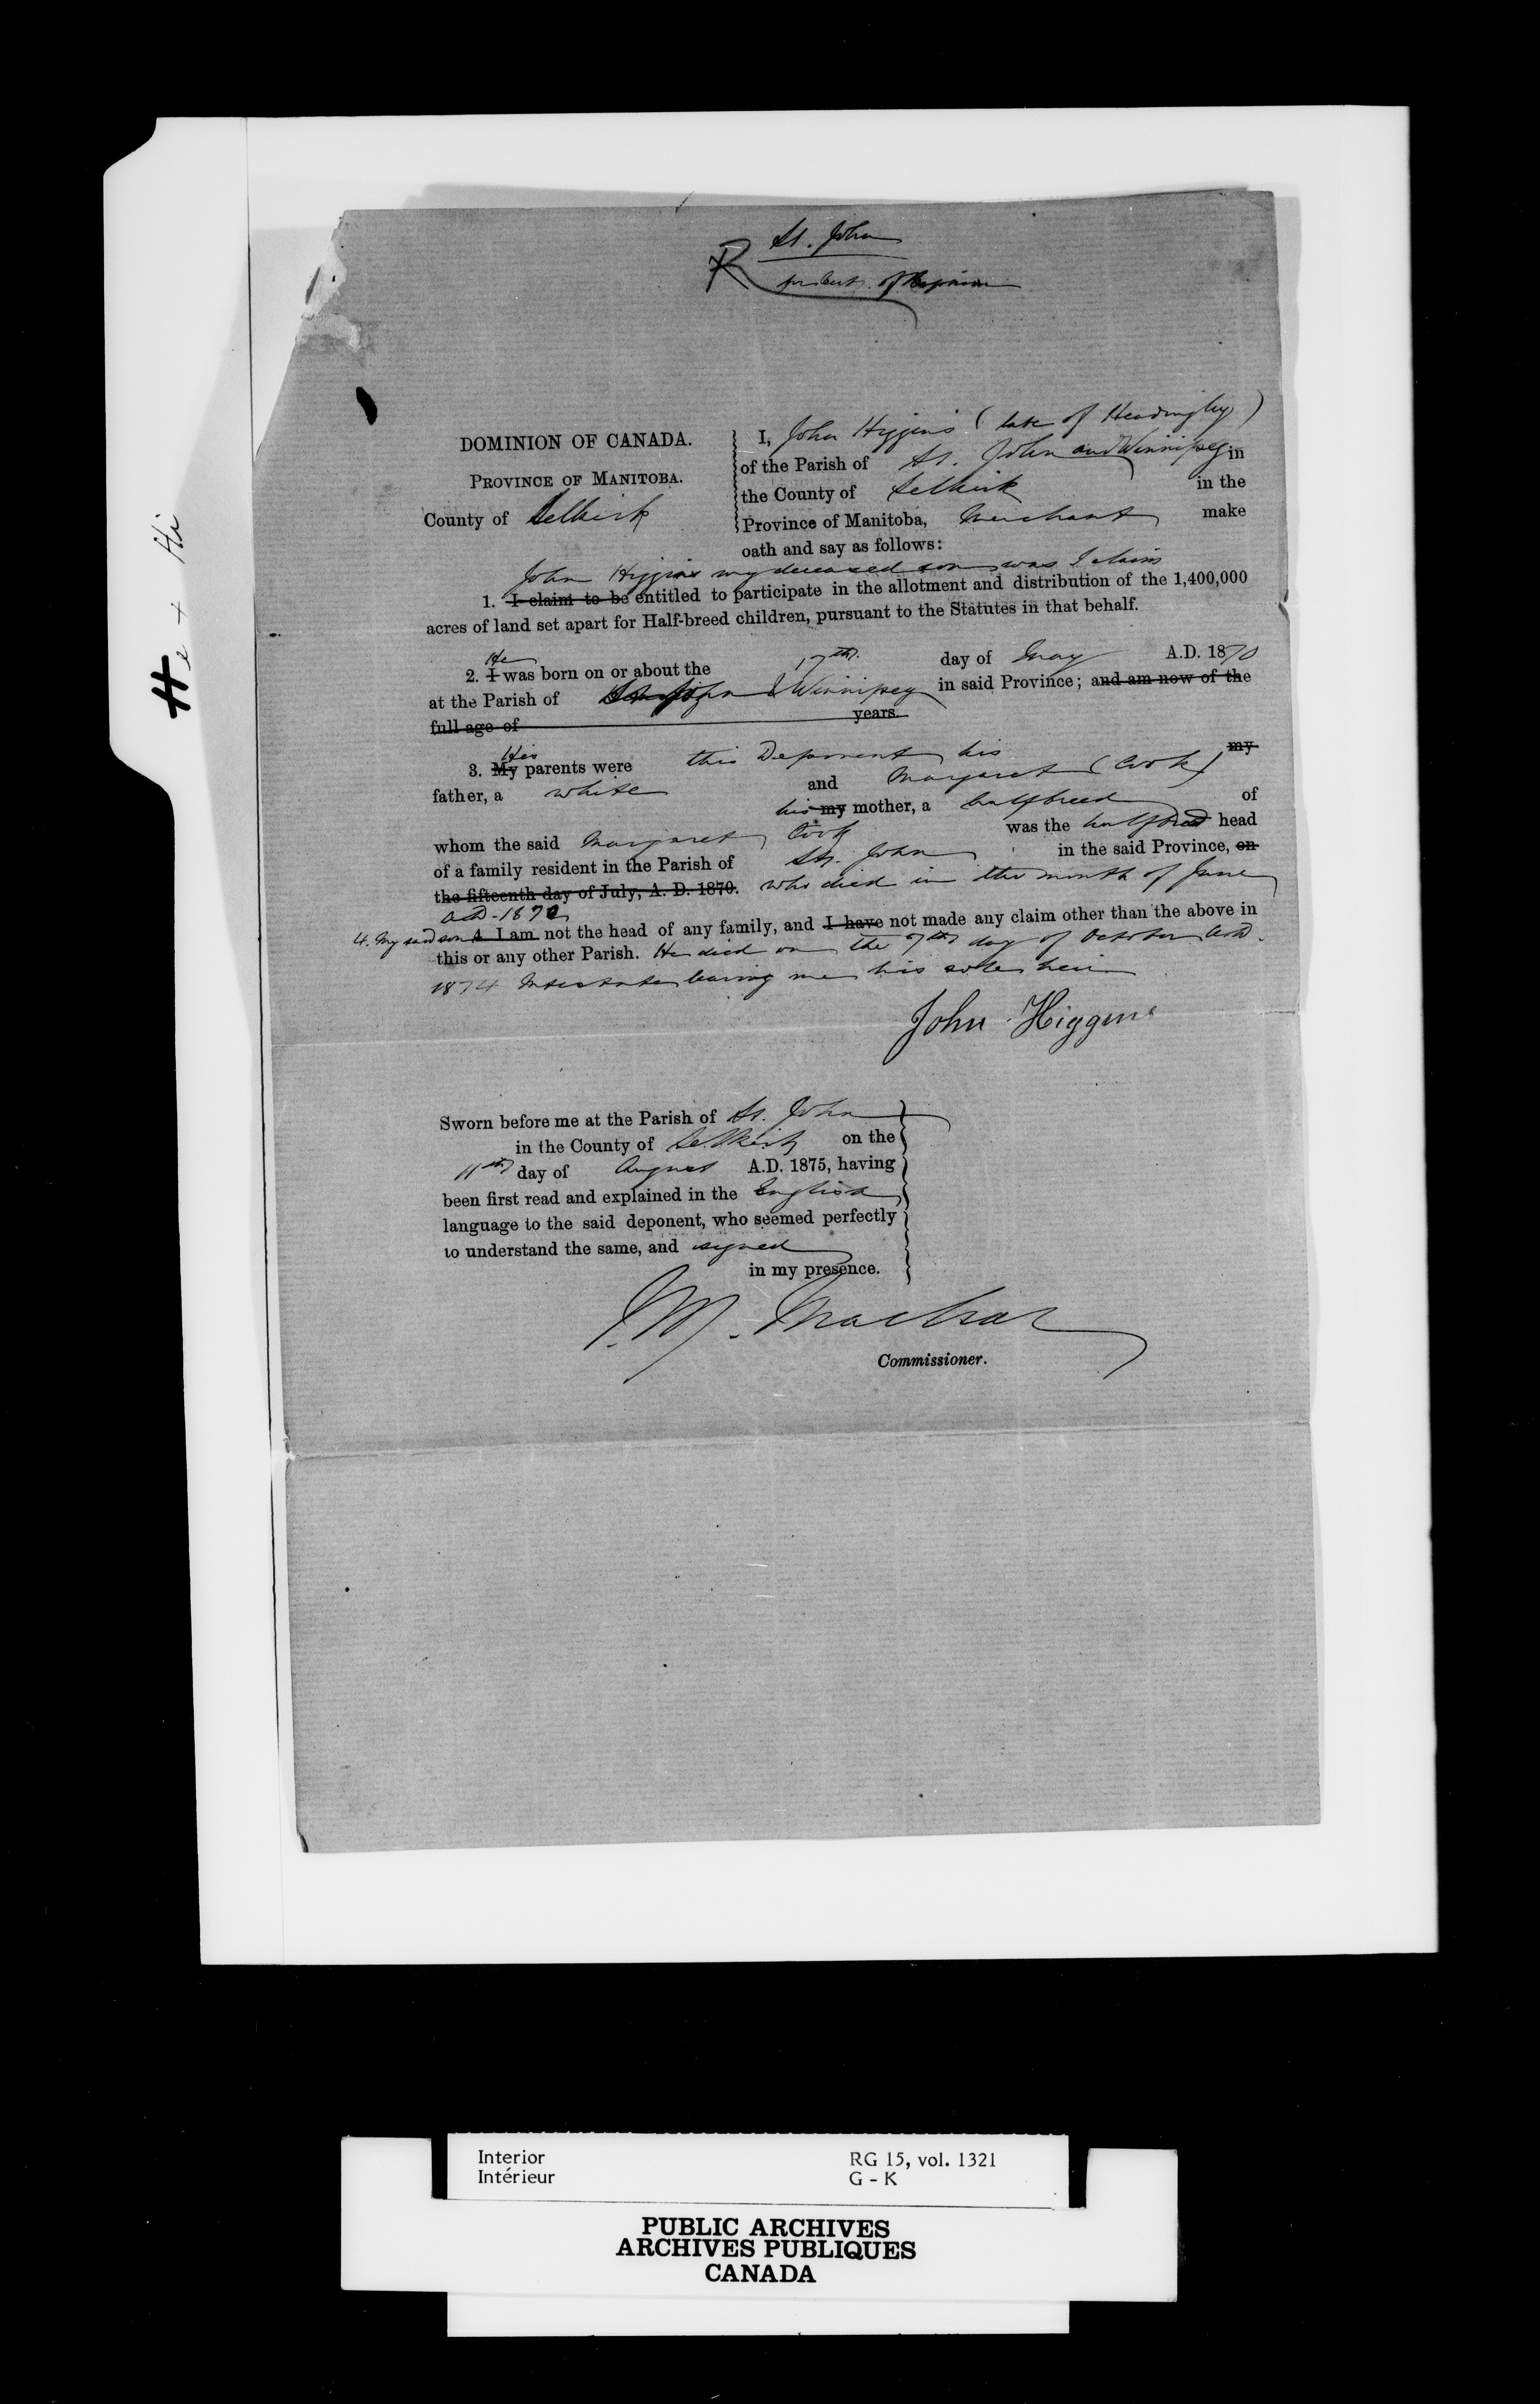 He + Hi
St. John
R
DOMINION OF CANADA.
PROVINCE OF MANITOBA.
County of Selkirk
I, John Higgins (late of Headingley)
of the Parish of St. John and Winnipeg in
the County of Selkirk in the
Province of Manitoba, Merchant make
oath and say as follows:
John Higgins my deceased son was I claim
1. I claim to be entitled to participate in the allotment and distribution of the 1,400,000
acres of land set apart for Half-breed children, pursuant to the Statutes in that behalf.
He
2. I was born on or about the 17th. day of May A.D. 1870
at the Parish of St. John Winnipeg in said Province; and am now of the
full age of years.
His
3. My parents were this Deponent his my
father, a white and Margaret (Cook)
his my mother, a halfbreed of
whom the said Margaret Cook was the halfbreed head
of a family resident in the Parish of St. John in the said Province, on
the fifteenth day of July, A. D. 1870. who died in the month of June
A.D. 1870
4. My said son 4. I am not the head of any family, and I have not made any claim other than the above in
this or any other Parish. He died on the 7th day of October A.D.
1874 Intestate leaving me his sole heir
John Higgins
Sworn before me at the Parish of St. John
in the County of Selkirk on the
11th day of August A.D. 1875, having
been first read and explained in the English
language to the said deponent, who seemed perfectly
to understand the same, and signed
in my presence.
J. M. Machar
Commissioner.
Interior RG 15, vol. 1321
Intérieur G - K
PUBLIC ARCHIVES
ARCHIVES PUBLIQUES
CANADA